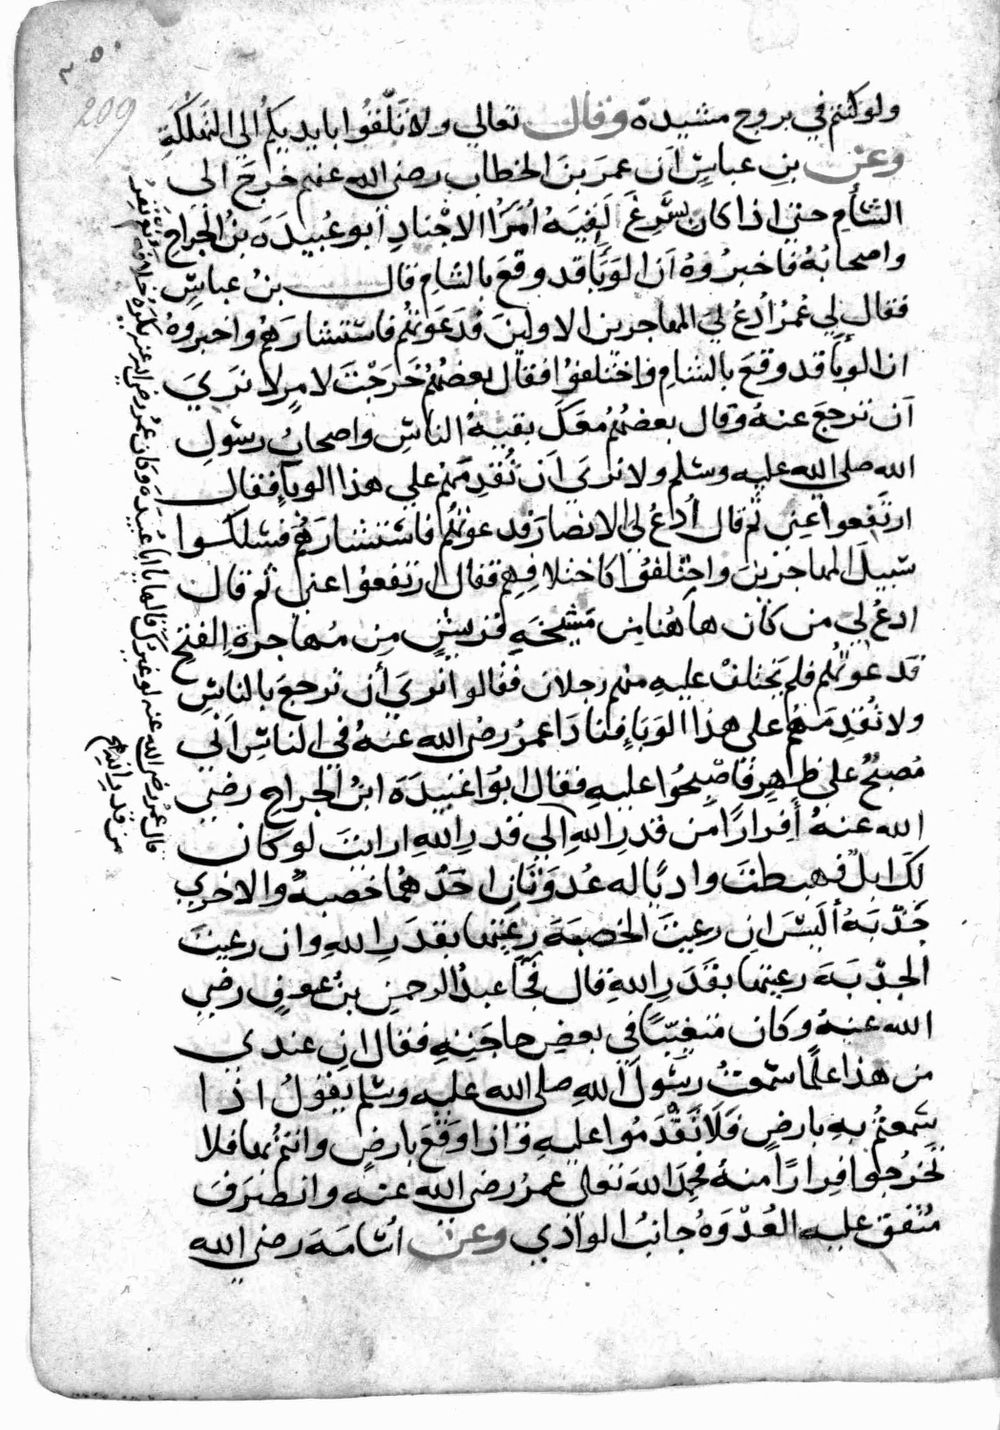 ٢٥٠
209
ولو كنتم في بروج مشيدة وقال تعالي ولا تلقوا بايديكم الي التهلكة
وعن بن عباس ان عمر بن الخطاب رضي الله عنهم خرج الى
الشأم حتى اذا كان بسرغ لقيه امرا الاجناد ابو عبيدة بن الجراح
واصحابه فاخبروه ان الوبا قد وقع بالشام قال بن عباس
فقال لي عمر ادع لي المهاجرين الاولين فدعوتهم فاستشارهم واخبروه
ان الوبا قد وقع بالشام فاختلفوا فقال بعضهم خرجت لامر لا نري
ان ترجع عنه وقال بعضهم معك بقية الناس واصحاب رسول
الله صلى الله عليه وسلم ولا نرى ان تقدمهم علي هذا الوبا فقال
ارتفعوا عني ثم قال ادع لي الانصار فدعوتهم فاستشارهم فسلكوا
سبيل المهاجرين واختلفوا كاختلافهم فقال ارتفعوا عني ثم قال
ادع لي من كان هاهنا من مشيخة قريش من مهاجرة الفتح
فدعوتهم فلم يختلف عليه منهم رجلان فقالوا نري أن ترجع بالناس
ولا تقدمهم على هذا الوباء فنادا عمر رضي الله عنه في الناس اني
مصبح على ظهر فاصبحوا عليه فقال ابو اعبيدة ابن الجراح رضي
الله عنه أفرارا من قدر الله الي قدر الله ارايت لو كان
لك ابل فهبطت واديا له عدوتان احدهما خصبة والاخري
جدبة أليس ان رعيت الخصبة رعيتها بقدر الله وان رعيت
الجدبة رعيتها بقدر الله قال فجا عبد الرحمن بن عوف رضي
الله عنه وكان متغيبا في بعض حاجته فقال ان عندي
من هذا علما سمعت رسول الله صلى الله عليه وسلم يقول اذا
سمعتم به بارض فلا تقدموا عليه واذا وقع بارض وانتم بها فلا
تخرجوا فرارا منه فحمد الله تعالى عمر رضي الله عنه وانصرف
متفق عليه العدوة جانب الوادي وعن اسامة رضي الله
قال عمر رضي الله عنه لو غيرك قالها يا ابا عبيدة وكان عمر رضي الله عنه يكره خلافه نعم نفر
من قدر الله الي